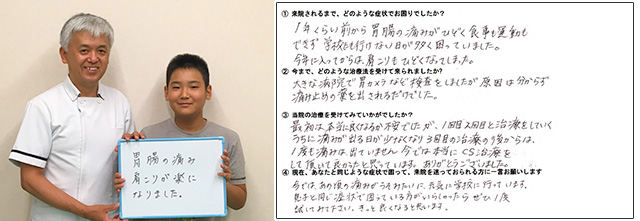 胃腸の痛み
肩こりが楽に
なりました。
① 来院されるまで、どのような症状でお困りでしたか？
1年くらい前から胃腸の痛みがひどく食事も運動も
できず学校も行けない日が多く困っていました。
今年に入ってからは、肩こりもひどくなってしまい。
② 今まで、どのような治療法を受けて来られましたか？
大きな病院で胃カメラなど検査をしましたが原因は分からず
痛み止めの薬を出されるだけでした。
③ 当院の治療を受けてみていかがでしたか？
最初は本当に良くなるか不安でしたが、1回目2回目と治療をしていく
うちに痛みが出る日が少なくなり3回目の治療の後からは、
1度も痛みは出ていません。今では本当にCS治療を
して頂いて良かったと思っています。ありがとうございました。
④ 現在、あなたと同じような症状で困って、来院を迷っておられる方に一言お願いします
今では、あの頃の痛みがうそみたいに、元気に学校に行っています。
息子と同じ症状で困っている方がいらっしゃったらぜひ1度
試してみて下さい。きっと良くなると思います。